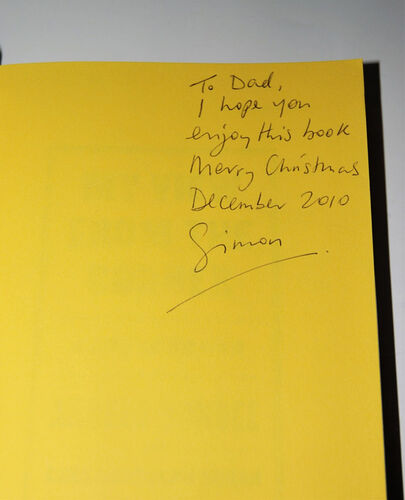 To Dad,
I hope you
enjoy this book
Merry Christmas
December 2010
Simon